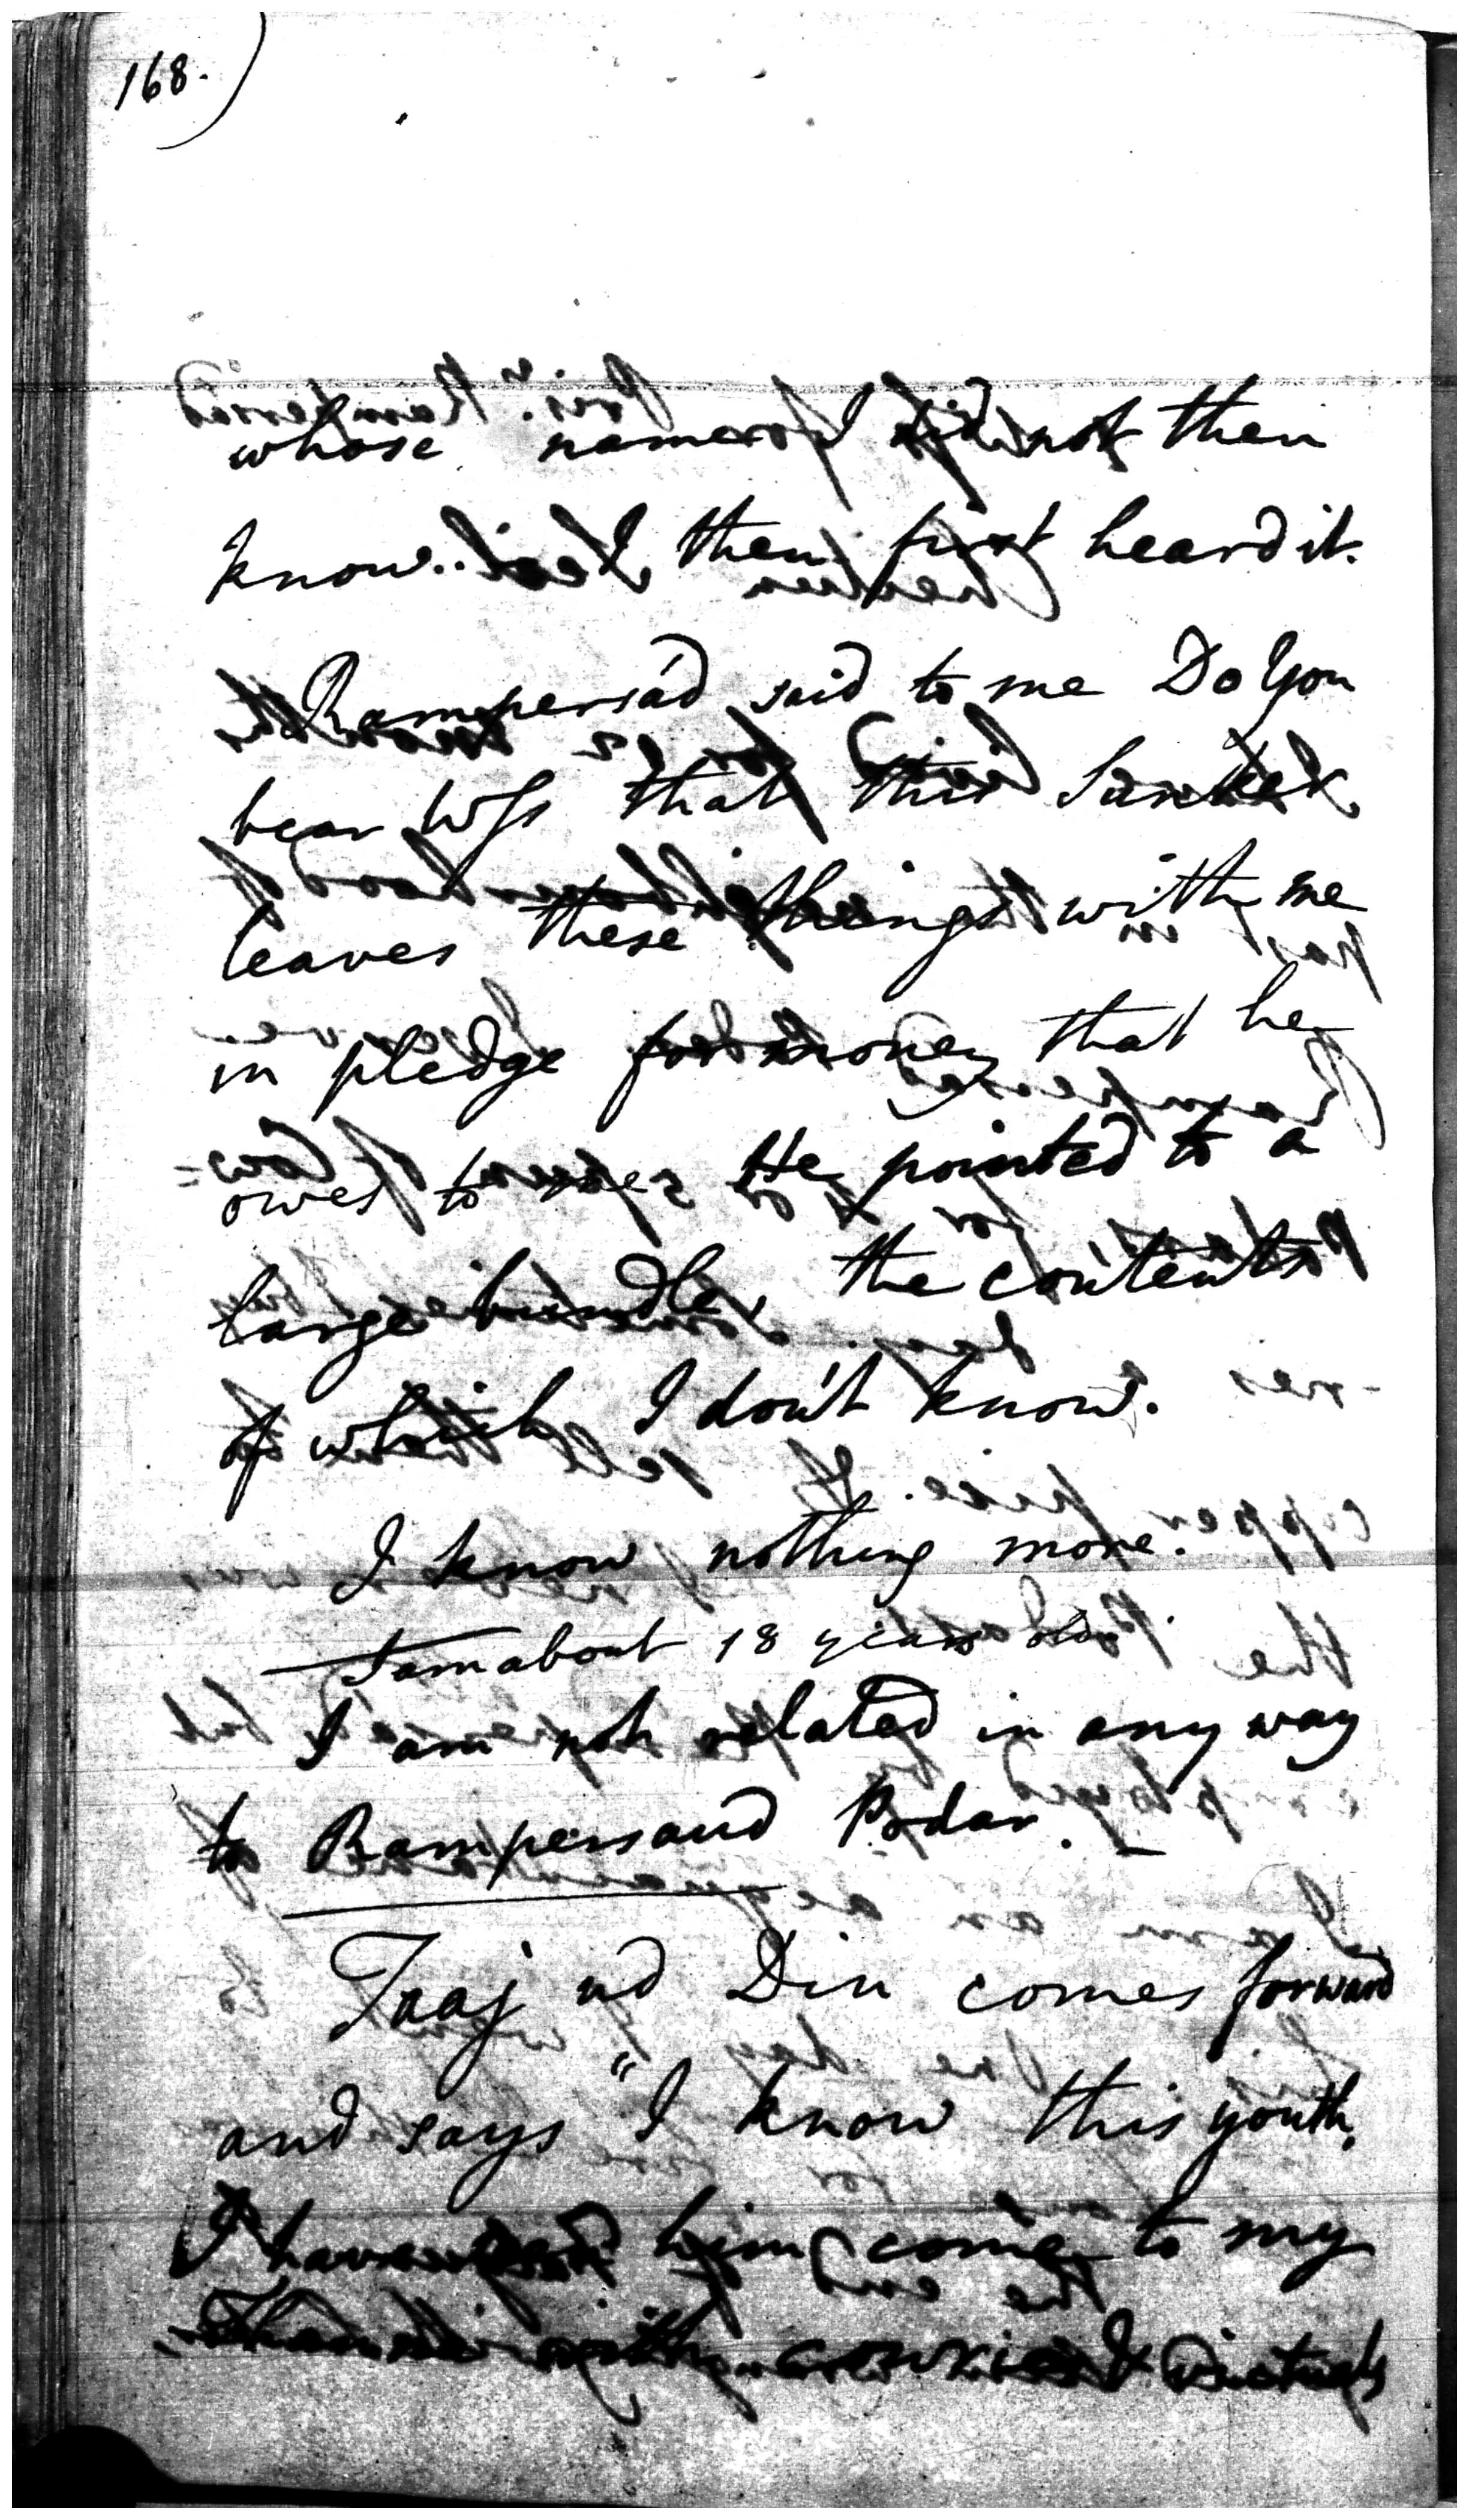 168.
whose name I did not then
know. I then first heard it.
Rampersád said to me Do You
bear Wss that this
leaves these things with me
in pledge for money that he
owes to me. He pointed to a
large bundle, the contents
of which I don't know.
I know nothing more.
I am about 18 years old.
I am not related in any way
to Rampersaud Podar.
Taaj ud Din comes forward
and says "I know this youth.
I have him come to my
Thannah with cowries & victuals